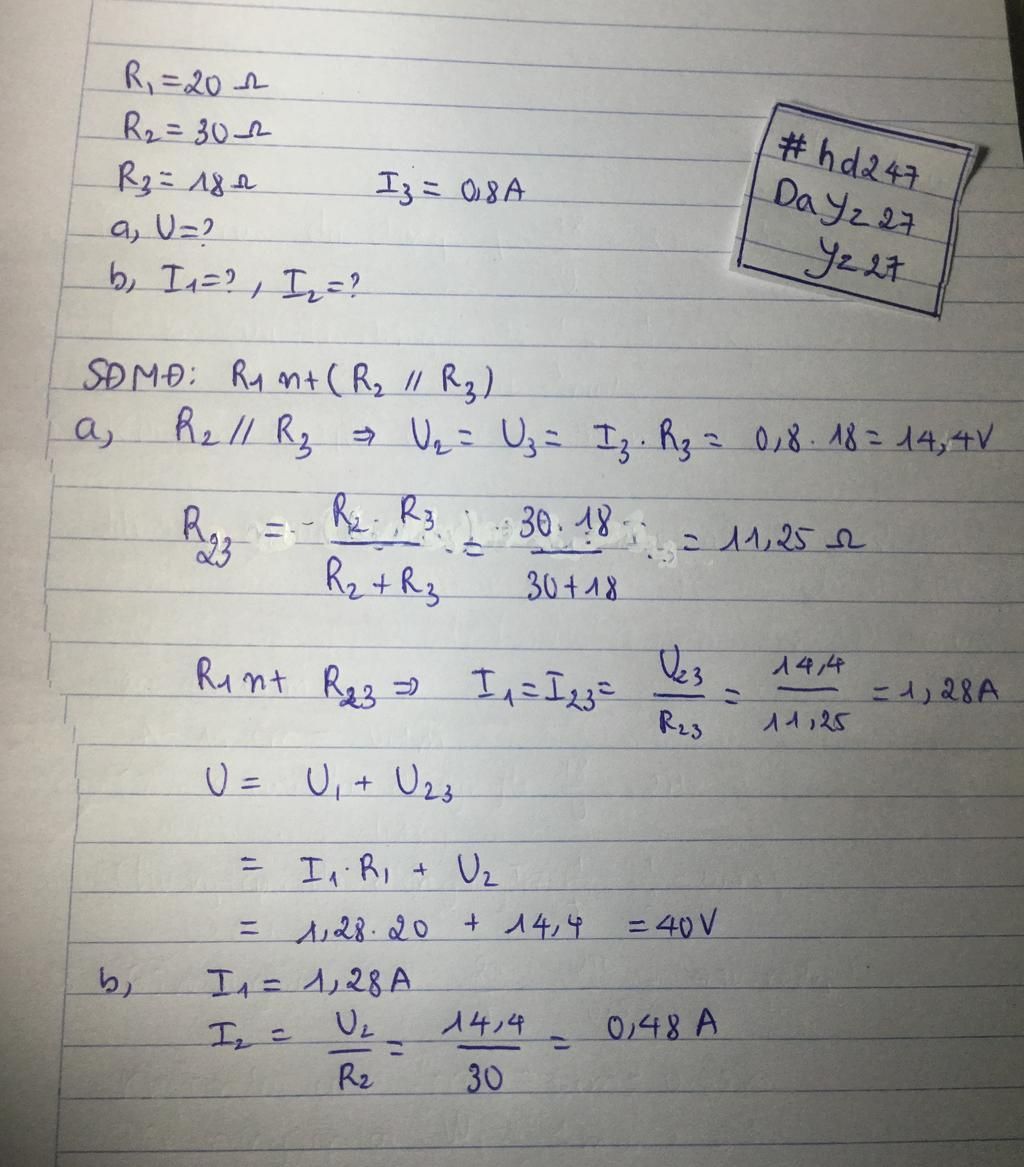 R₁ = 20 Ω
R₂ = 30 Ω
R₃ = 18 Ω I₃ = 0,8A
a, U=?
b, I₁=? , I₂=?
#hd247
Dayz27
yz27
SĐMĐ: R₁ nt (R₂ // R₃)
a, R₂ // R₃ ⇒ U₂ = U₃ = I₃. R₃ = 0,8 . 18 = 14,4V
R₂₃ = (R₂. R₃)/(R₂ + R₃) = (30. 18)/(30+18) = 11,25 Ω
R₁ nt R₂₃ ⇒ I₁ = I₂₃ = U₂₃/R₂₃ = 14,4/11,25 = 1,28A
U = U₁ + U₂₃
= I₁. R₁ + U₂
= 1,28. 20 + 14,4 = 40V
b, I₁ = 1,28A
I₂ = U₂/R₂ = 14,4/30 = 0,48 A